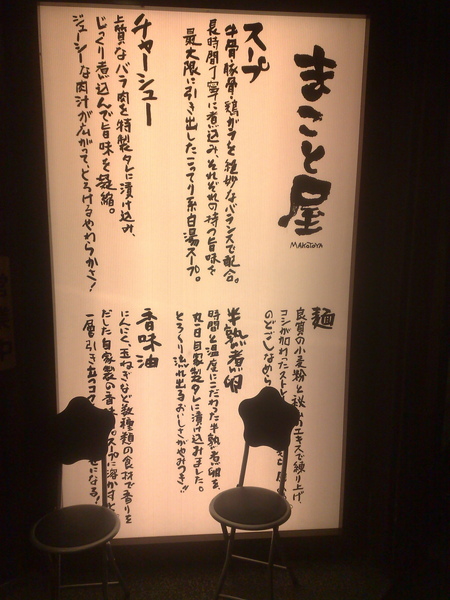 まこと屋
MAKOTOYA
スープ
牛骨・豚骨・鶏ガラを絶妙なバランスで配合。
長時間丁寧に煮込み、それぞれの持つ旨味を
最大限に引き出したこってり系白湯スープ。
チャーシュー
上質なバラ肉を特製タレに漬け込み、
じっくり煮込んで旨味を凝縮。
ジューシーな肉汁が広がって、とろけるやわらかさ!
麺
良質の小麦粉と秘伝のエキスで練り上げ、
コシが加わったストレ
のどごしなめら
半熟煮卵
時間と温度にこだわった半熟煮卵を、
丸一日自家製タレに漬け込みました。
とろ〜り流れ出るおいしさがやみつき!!
香味油
にんにく、玉ねぎなど数種類の食材で香りを
だした自家製の香味
スープに溶かすと
一層引き立つコク
になる!